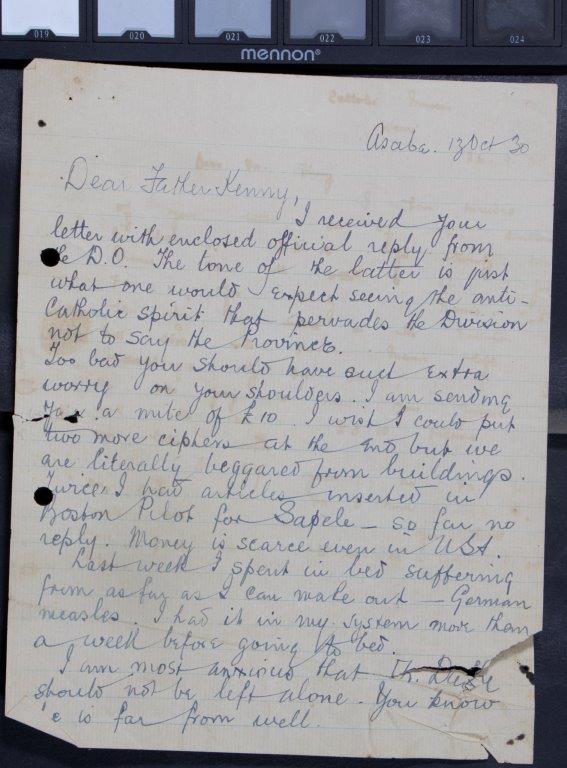 019 020 021 022 023 024
mennon®
Asaba. 13 Oct 30
Dear Father Kenny,
I received your
letter with enclosed official reply from
the D.O. The tone of the latter is just
what one would expect seeing the anti-
Catholic spirit that pervades the Division
not to say the Province.
Too bad you should have such extra
worry on your shoulders. I am sending
you a mite of £10. I wish I could put
two more ciphers at the end but we
are literally beggared from buildings.
Twice I had articles inserted in
Boston Pilot for Sapele - so far no
reply. Money is scarce even in USA.
Last week I spent in bed suffering
from as far as I can make out - German
measles. I had it in my system more than
a week before going to bed.
I am most anxious that
should not be left alone. You know
e is far from well.